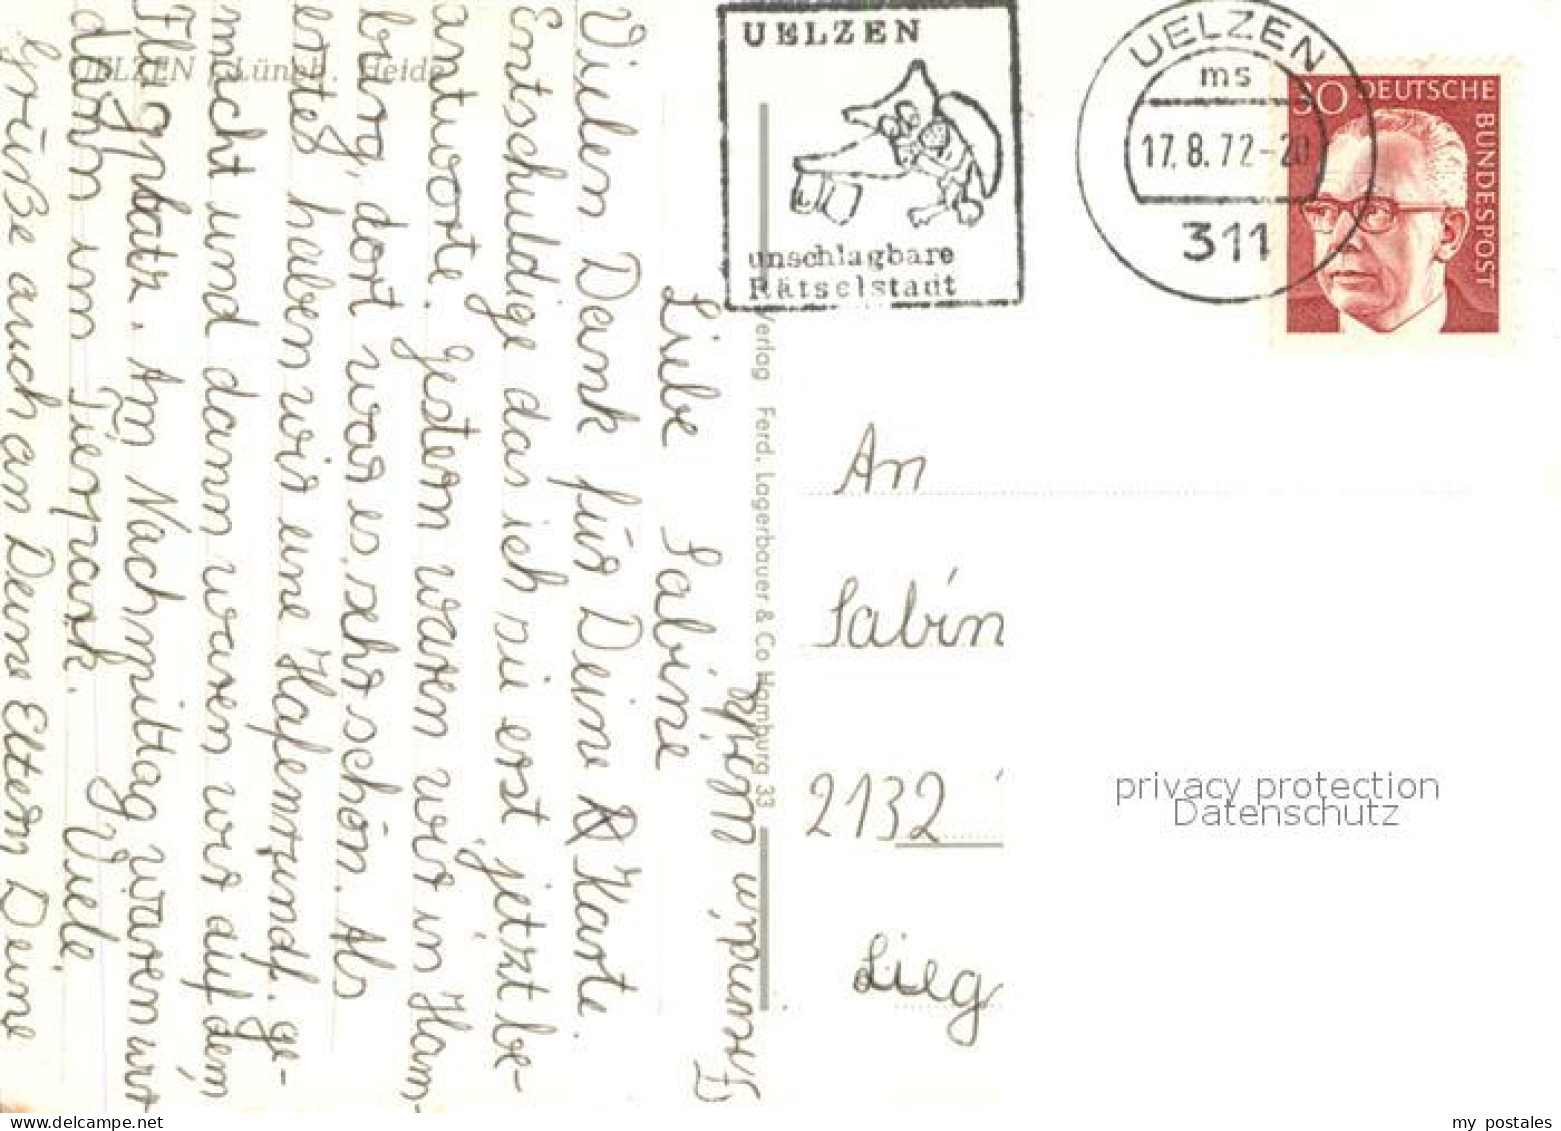 UELZEN / Lüneb. Heide
UELZEN
unschlagbare
Rätselstadt
UELZEN
ms
17.8.72-20
311
30 DEUTSCHE
BUNDESPOST
Verlag Ferd. Lagerbauer & Co Hamburg 33
Liebe Sabine
Vielen Dank für Deine Karte.
Entschuldige das ich sie erst jetzt be-
antworte. Gestern waren wir in Ham-
burg, dort war es sehr schön. Als
erstes haben wir eine Hafenrundf. ge-
macht und dann waren wir auf dem
Flugplatz. Am Nachmittag waren wir
dann im Tierpark. Viele
Grüße auch an Deine Eltern Deine
Freundin
An
Sabin
2132
Lieg
privacy protection
Datenschutz
www.delcampe.net
my_postales